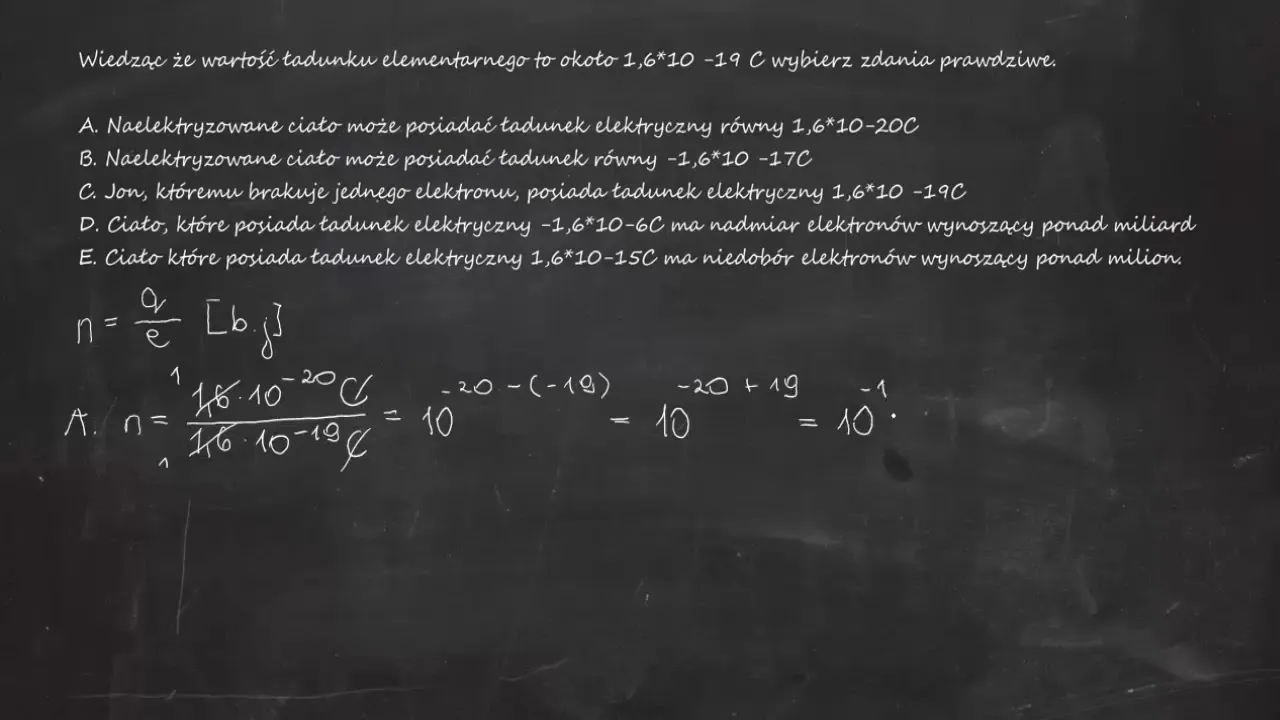 Wiedząc że wartość ładunku elementarnego to około 1,6*10 -19 C wybierz zdania prawdziwe.
A. Naelektryzowane ciało może posiadać ładunek elektryczny równy 1,6*10-20C
B. Naelektryzowane ciało może posiadać ładunek równy -1,6*10 -17C
C. Jon, któremu brakuje jednego elektronu, posiada ładunek elektryczny 1,6*10 -19C
D. Ciało, które posiada ładunek elektryczny -1,6*10-6C ma nadmiar elektronów wynoszący ponad miliard
E. Ciało które posiada ładunek elektryczny 1,6*10-15C ma niedobór elektronów wynoszący ponad milion.
n = Q/e [b.j]
A. n = 1,6·10⁻²⁰C / 1,6·10⁻¹⁹C = 10^(-20-(-19)) = 10^(-20+19) = 10⁻¹·